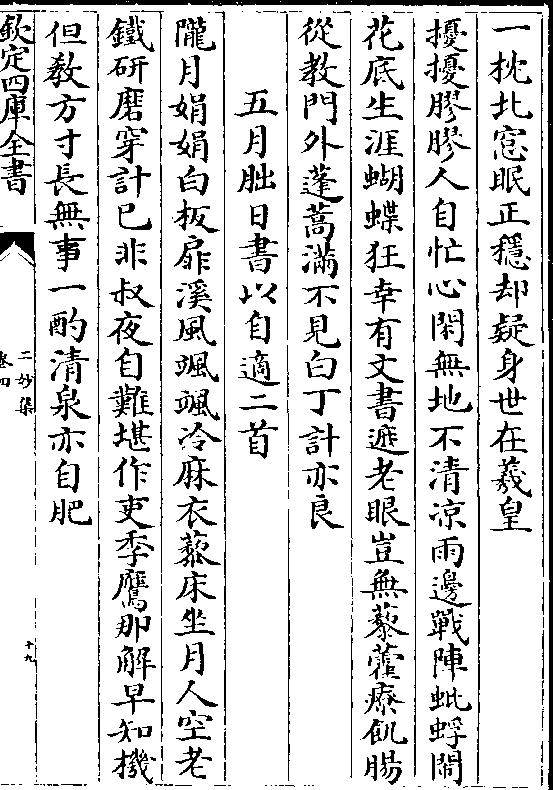 一枕北窓眠正穩却疑身世在羲皇
擾擾膠膠人自忙心閑無地不清凉雨邊戰陣蚍蜉鬧
花底生涯蝴蝶狂幸有文書遮老眼豈無藜藿療飢腸
從教門外蓬蒿滿不見白丁計亦良
五月朏日書以自適二首
隴月娟娟白板扉溪風颯颯冷麻衣藜床坐月人空老
鐵研磨穿計已非叔夜自難堪作吏季鷹那解早知機
但教方寸長無事一酌清泉亦自肥
欽定四庫全書
二妙集
卷四
十九